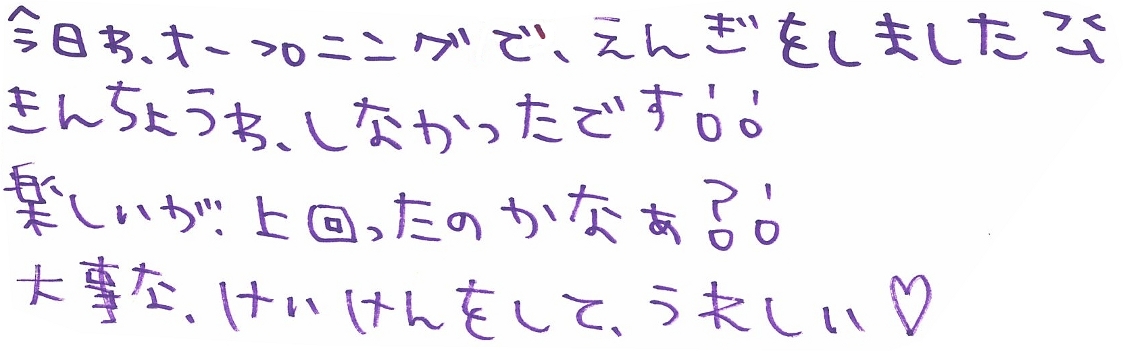 今日わ、オープニングで、えんぎをしました
きんちょうわ、しなかったです!!
楽しいが!上回ったのかなぁ?!
大事な、けいけんをして、うれしい♡